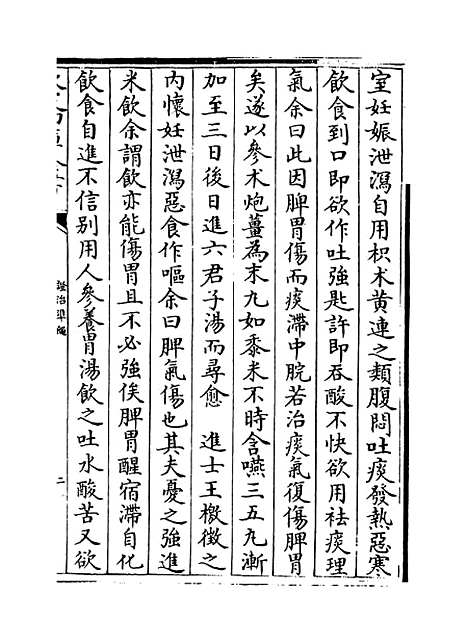 室妊娠泄瀉自用枳术黄連之類腹悶吐痰發熱惡寒
飲食到口即欲作吐強匙許即吞酸不快欲用袪痰理
氣余曰此因脾胃傷而痰滯中脘若治痰氣復傷脾胃
矣遂以參术炮薑為末丸如黍米不時含嚥三五丸漸
加至三日後日進六君子湯而尋愈 進士王檄徴之
内懷妊泄瀉惡食作嘔余曰脾氣傷也其夫憂之強進
米飲余謂飲亦能傷胃且不必強俟脾胃醒宿滯自化
飲食自進不信别用人參養胃湯飲之吐水酸苦又欲
證治準繩
二